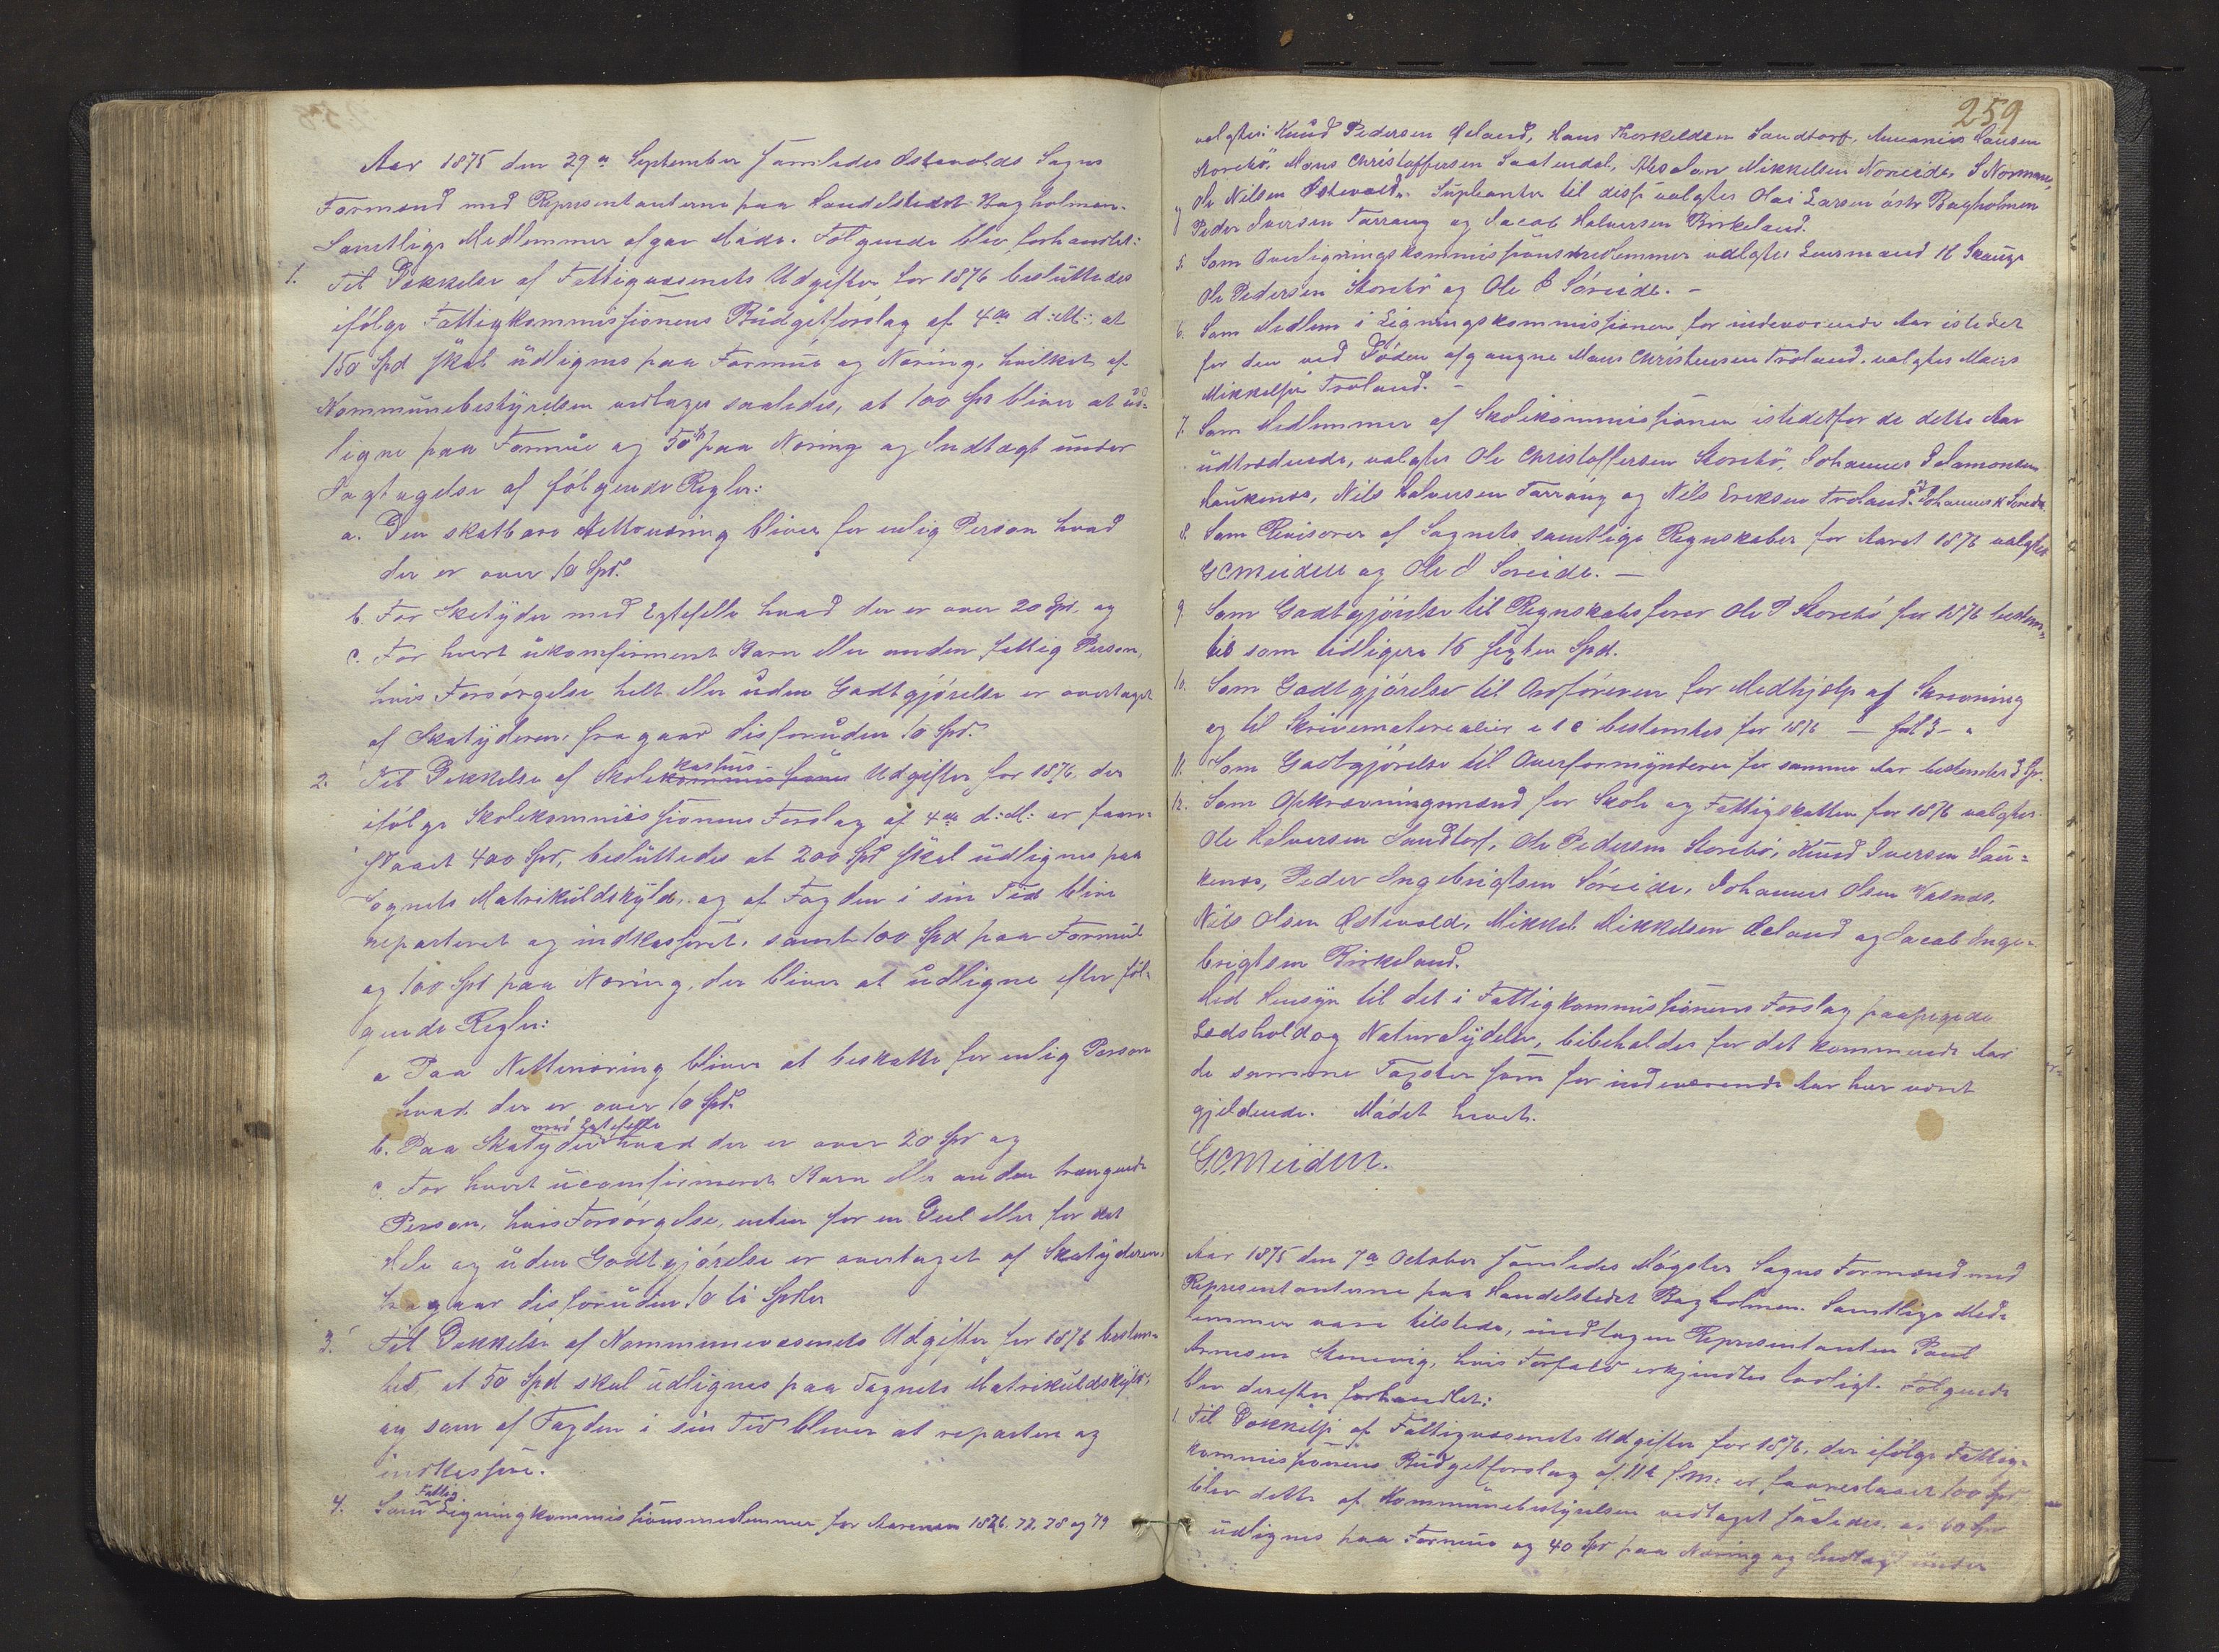 Aar 1875 den 29de September samledes Østevolds Sogns
Formænd med Repræsentanterne paa Handelstedet Bagholmen.
Samtlige Medlemmer afgav Møde. Følgende blev forhandlet:
1. Til Dækkelse af Fattigvæsenets Udgifter for 1876 besluttedes
ifølge Fattigkommissionens Budgetforslag af 4de d: M:, at
150 Spd skal udlignes paa Formue og Næring, hvilket af
Kommunebestyrelsen vedtages saaledes, at 100 Spd bliver at ud-
ligne paa Formue og 50 Sp paa Næring og Indtægt under
Iagtagelse af følgende Regler:
a. Den skatbare Nettonæring bliver for enlig Person hvad
der er over 10 Spd.
b. For Skatyder med Egtefelle hvad der er over 20 Spd, og
c. For hvert ukonfirmert Barn eller anden fattig Person,
hvis Forsørgelse helt eller uden Godtgjørelse er overtaget
af Skatyderen, fragaar desforuden 10 Spd.
2. Til Dækkelse af Skolekassens Udgifter for 1876, der
ifølge Skolekommissionens Forslag af 4de d: M: er fore-
slaaet 400 Spd, besluttedes at 200 Spd skal udlignes paa
Sognets Matrikuldskyld, og af Fogden i sin Tid blive
reparteret og indkasseret, samt 100 Spd paa Formue
og 100 Spd paa Næring, der bliver at udligne efter føl-
gende Regler:
a Paa Nettenæring bliver at beskatte for enlig Person
hvad der er over 10 Spd.
b. Paa Skatyder med Egtefelle hvad der er over 20 Spd og
c. For hvert uconfirmeret Barn eller anden trængende
Person, hvis Forsørgelse, enten for en Deel eller for det
Hele og uden Godtgjørelse er overtaget af Skatyderen,
fragaar desforuden 10 ti Spdler
3. Til Dækkelse af Kommunevæsenets Udgifter for 1876 bestem-
tes, at 50 Spd skal udlignes paa Sognets Matrikuldskyld,
og som af Fogden i sin Tid bliver at repartere og
indkassere.
4. Som Fattig Ligningkommissionsmedlemmer for Aarene 1876. 77. 78 og 79
259
valgtes: Knud Pedersen Heland, Hans Thorkeldsen Sandtorf, Annanias Hansen
Storebø, Mons Christoffersen Saatendal, Absalon Mikkelsen Noreide, S Norman,
og Ole Nilsen Østevold. Supleanter til disse valgtes Olai Larsen østr Bagholmen
Peder Iversen Tarrang og Jacob Halversen Birkeland.
5. Som Overligningskommissionsmedlemmer valgtes Lensmand H Skauge
Ole Pedersen Storebø og Ole I Søreide. -
6. Som Medlem i Ligningskommissionen for indeværende Aar istedet
for den ved Døden afgangne Mons Christensen Troland valgtes Mons
Mikkelsen Troland. -
7. Som Medlemmer af Skolekommissionen istedetfor de dette Aar
udtrædende, valgtes Ole Christoffersen Storebø, Johannes Salamonsen
Haukenæs, Nils Halversen Tarrang og Nils Eriksen Troland. og Johannes K Søreide
8. Som Revisorer af Sognets samtlige Regnskaber for Aaret 1876 valgtes
G C Meidell og Ole I Soreide. -
9. Som Godtgjørelse til Regnskabsfører Ole P Storebø for 1876 bestem-
tes som tidligere 16 sexten Spd.
10. Som Godtgjørelse til Ordføreren for Medhjælp af Skrivning
og til Skrivematerialier etc bestemtes for 1876 - Spd 3 - "
11. Som Godtgjørelse til Overformynderen for samme Aar bestemtes 3 Sp.
12. Som Opkrævningsmænd for Skole og Fattigskatten for 1876 valgtes
Ole Halversen Sandtorf, Ole Pedersen Storebø, Knud Iversen Hau-
kenæs, Peder Ingebrigtsen Søreide, Johannes Olsen Vasnæs,
Nils Olsen Østevold, Mikkel Mikkelsen Heland og Jacob Inge-
brigtsen Birkeland.
Med Hensyn til det i Fattigkommissionens Forslag paapegede
Lædshold og Naturalydelse, bibeholdes for det kommende Aar
de samme Taxster som for indeværende Aar har været
gjeldende. Mødet hævet.
G.C. Meidell.
Aar 1875 den 7de October samledes Møgster Sogns Formænd med
Repræsentanterne paa Handelstedet Bagholmen. Samtlige Med-
lemmer vare tilstede, undtagen Repræsentanten Paul
Arnesen Stenevig, hvis Forfald erkjendtes lovligt. Følgende
blev derefter forhandlet:
1. Til Dækkelse af Fattigvæsenets Udgifter for 1876, der ifølge Fattig-
kommissionens Budgetforslag af 11te f.M: er foreslaaet 100 Spd
blev dette af Kommunebestyrelsen vedtaget saaledes, at 60 Spd
udlignes paa Formue og 40 Spd paa Næring og Indtægt under